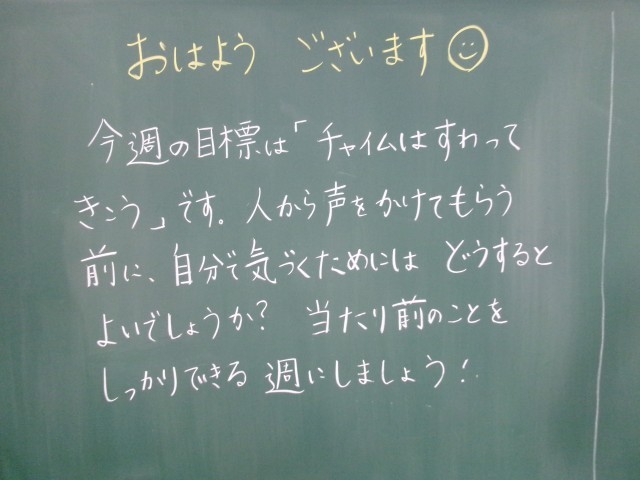 おはよう ございます
今週の目標は「チャイムはすわって
きこう」です。人から声をかけてもらう
前に、自分で気づくためには どうすると
よいでしょうか? 当たり前のことを
しっかりできる 週にしましょう!